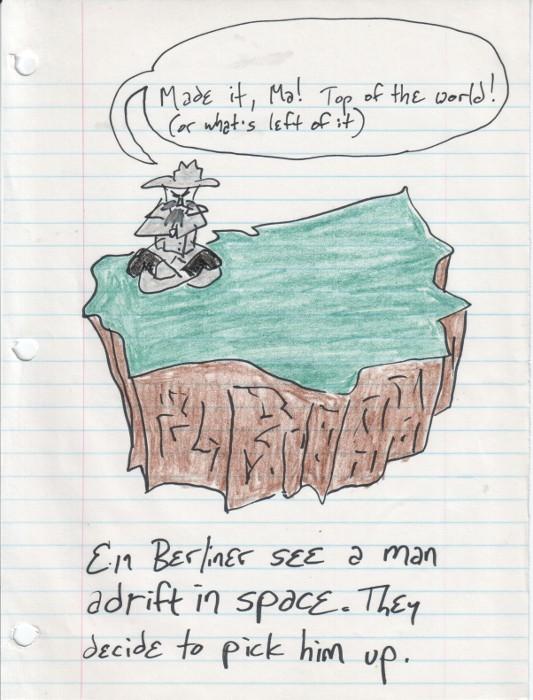 Made it, Ma! Top of the world!
(or what's left of it)
Ein Berliner see a man
adrift in space. They
decide to pick him up.